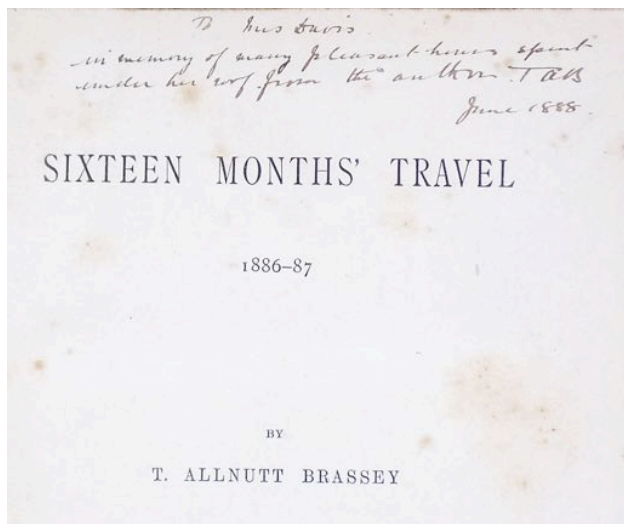 To Mrs Davis
in memory of many pleasant hours spent
under her roof from the author. TAB
June 1888.
SIXTEEN MONTHS' TRAVEL
1886–87
BY
T. ALLNUTT BRASSEY